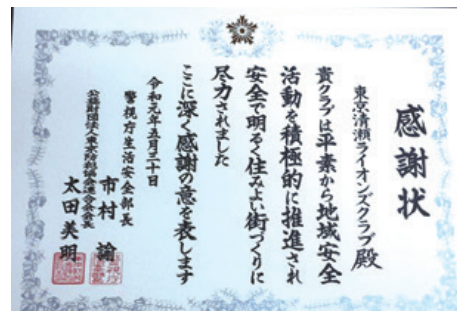 感謝状
東京清瀬ライオンズクラブ殿
貴クラブは平素から地域安全
活動を積極的に推進され
安全で明るく住みよい街づくりに
尽力されました
ここに深く感謝の意を表します
令和六年五月三十日
警視庁生活安全部長
市村諭
公益財団法人東京防犯協会連合会会長
太田美明